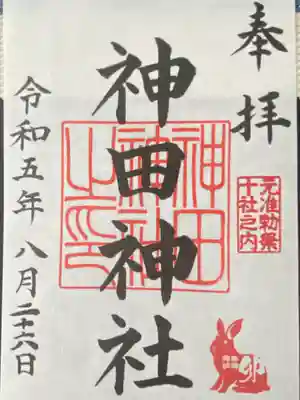 奉拝
元准勅祭
十社之内
神田神社
神田
神社
之印
卯
令和五年八月二十六日